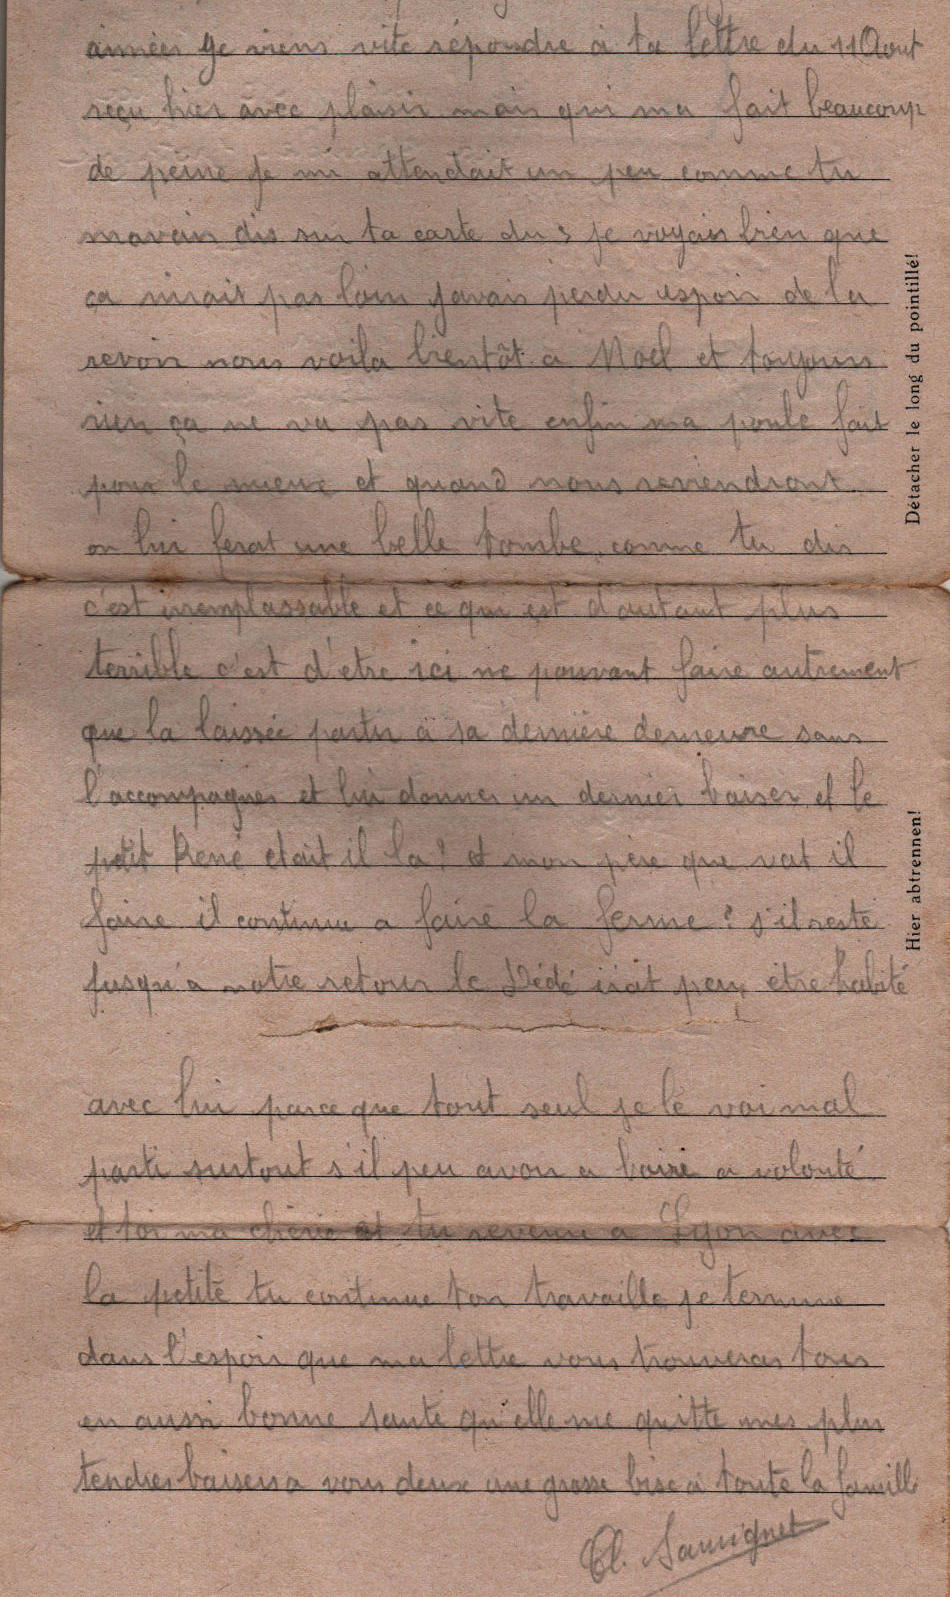 aimées Je viens vite répondre a ta lettre du 11 Aout
reçu hier avec plaisir mais qui ma fait beaucoup
de peine je mi attendait un peu comme tu
mavais dis sur ta carte du 3 je voyais bien que
ça nirait pas loin javais perdu espoir de la
revoir nous voila bientôt a Noël et toujours
rien ça ne va pas vite enfin ma poule fait
pour le mieux et quand nous reviendront
on lui ferat une belle tombe comme tu dis
c'est inremplassable et ce qui est d'autant plus
terrible c'est d'etre ici ne pouvant faire autrement
que la laissée partir a sa dernière demeure sans
l'accompagner et lui donner un dernier baiser et le
petit René etait il la? et mon père que vat il
faire il continue a faire la ferme? s'il reste
jusqu'a notre retour le Dédé irait peu etre habité
avec lui parce que tout seul je le voi mal
parti surtout s'il peu avoir a boire a volonté
et toi ma chérie et tu revenu a Lyon avec
la petite tu continue ton travaille je termine
dans l'espoir que ma lettre vous trouveras tous
en aussi bonne santé qu'elle me quitte mes plus
tendres baisers a vous deux une grosse bise a toute la famill
Cl. Sauvignet
Détacher le long du pointillé!
Hier abtrennen!